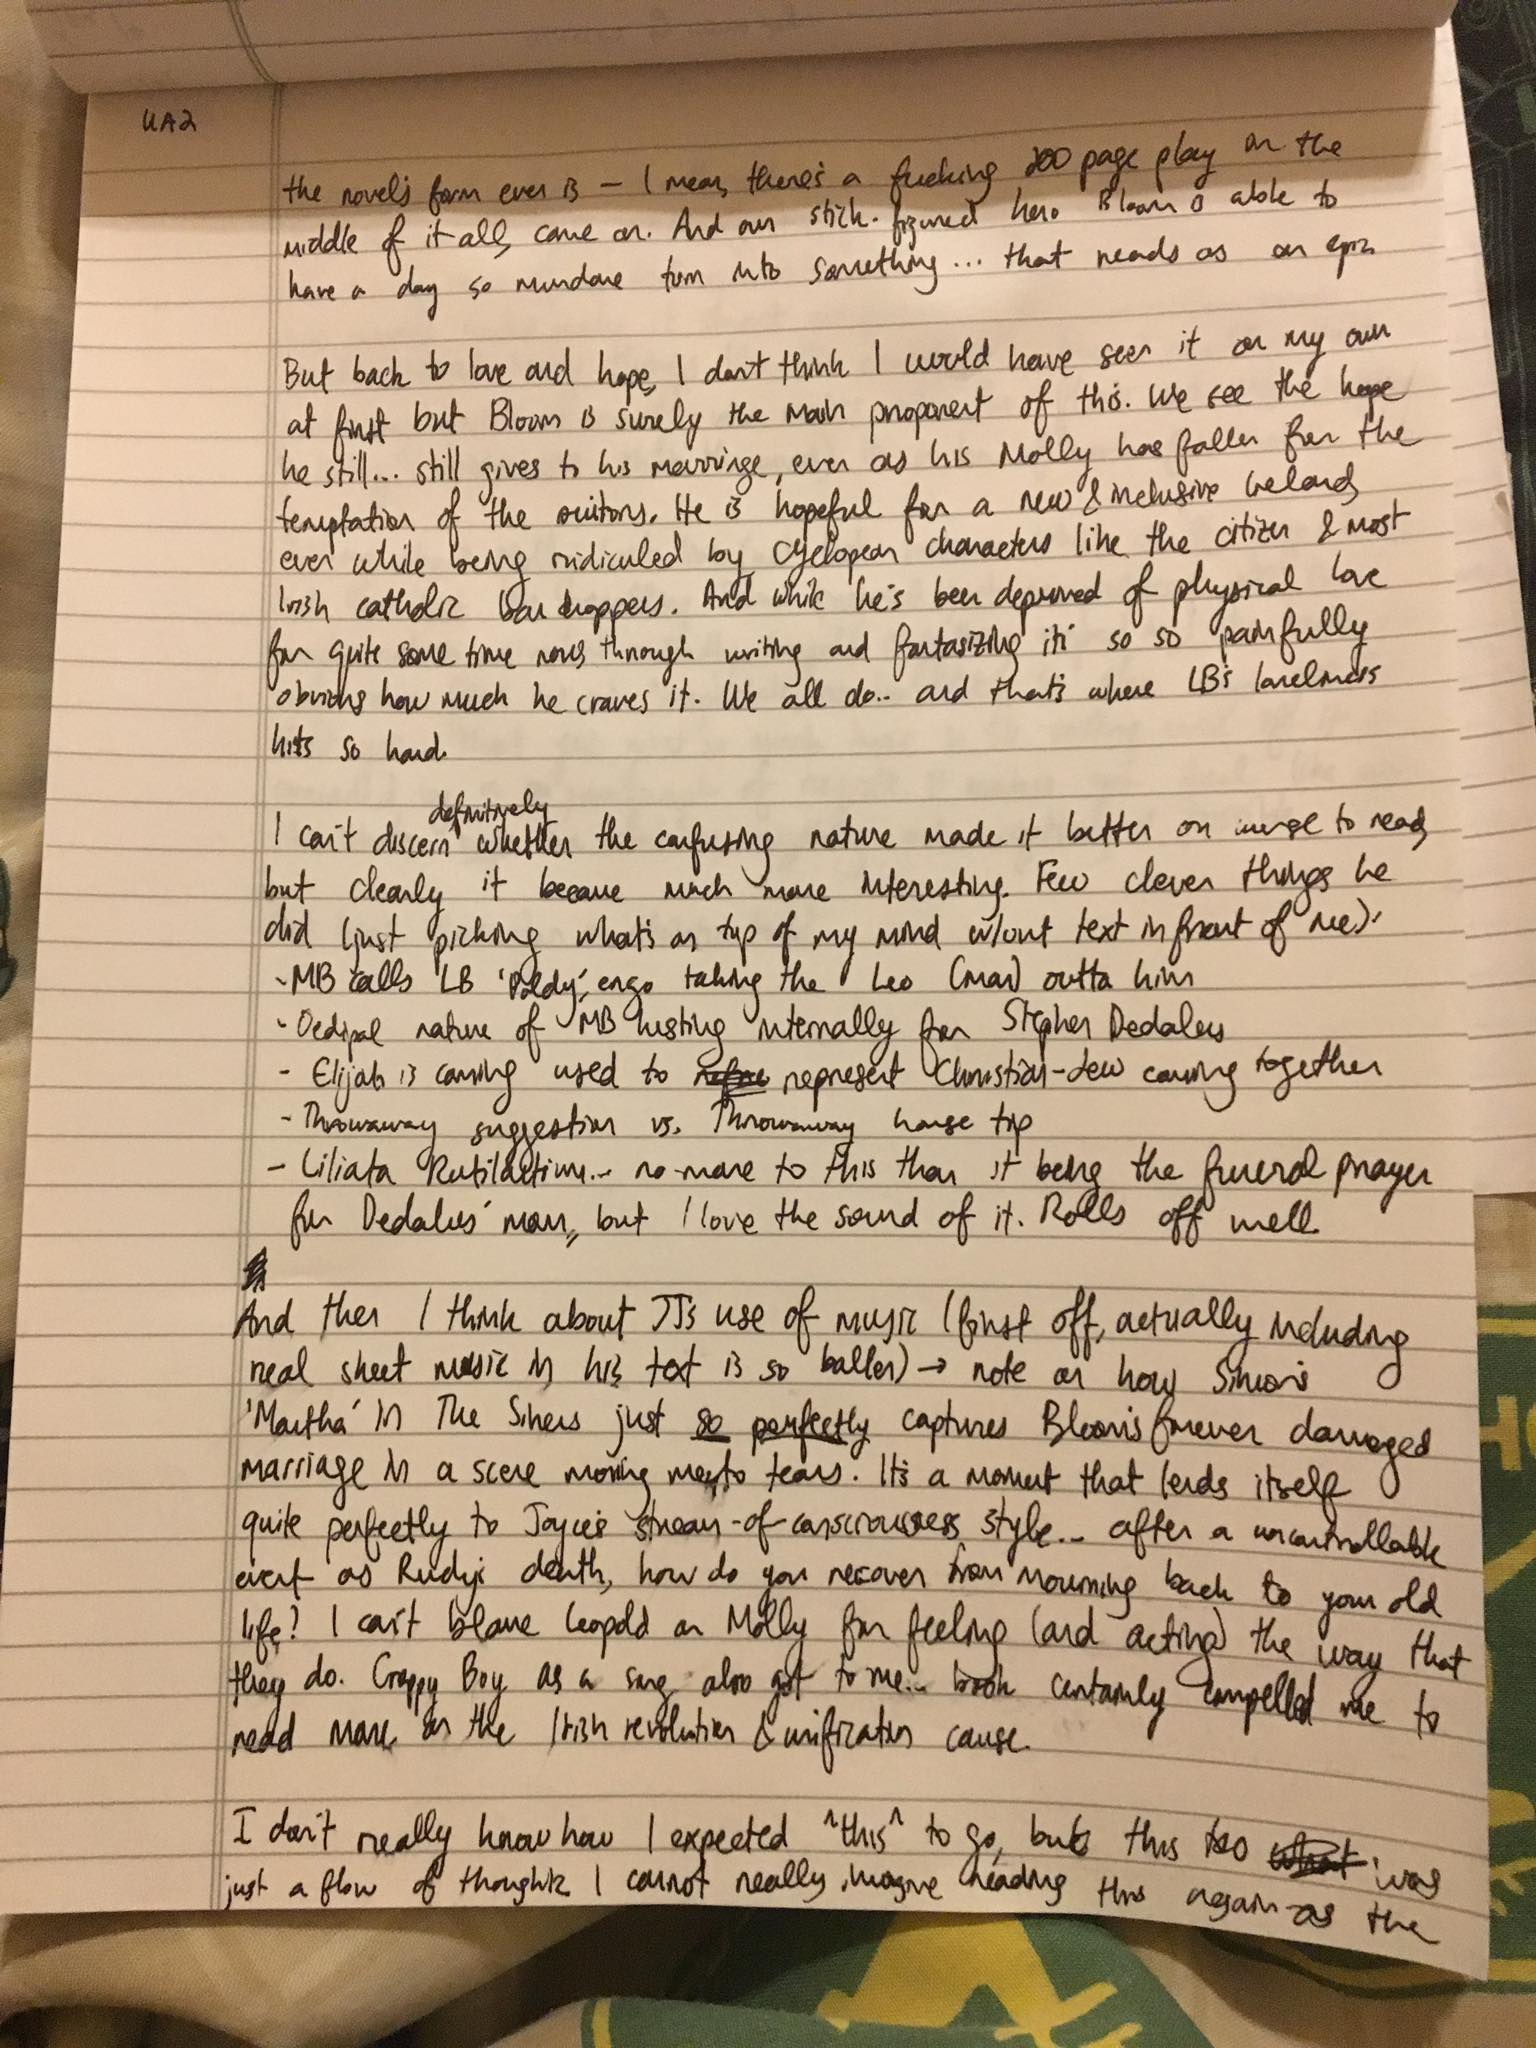 UA2
the novel's form ever is – I mean, there's a fucking 200 page play in the
middle of it all, come on. And our stick-figured hero Bloom is able to
have a day so mundane turn into something... that reads as an epic
But back to love and hope, I don't think I would have seen it on my own
at first but Bloom is surely the main proponent of this. We see the hope
he still... still gives to his marriage, even as his Molly has fallen for the
temptation of the suitors. He is hopeful for a new & inclusive Ireland,
even while being ridiculed by cyclopean characters like the citizen & most
Irish catholic bar hoppers. And while he's been deprived of physical love
for quite some time now, through writing and fantasizing it's so so painfully
obvious how much he craves it. We all do.. and that's where LB's loneliness
hits so hard.
definitively
I can't discern ^ whether the confusing nature made it better or worse to read,
but clearly it became much more interesting. Few clever things he
did (just picking what's on top of my mind w/out text in front of me):
- MB calls LB 'Poldy', ergo taking the Leo (man) outta him
- Oedipal nature of MB lusting internally for Stephen Dedalus
- Elijah is coming used to represent Christian-Jew coming together
- Throwaway suggestion vs. Throwaway horse tip
- Liliata Rutilantium.. no more to this than it being the funeral prayer
for Dedalus' mom, but I love the sound of it. Rolls off well.
And then I think about JJ's use of music (first off, actually including
real sheet music in his text is so baller) → note on how Simon's
'Martha' in The Sirens just so perfectly captures Bloom's forever damaged
marriage in a scene moving me to tears. It's a moment that lends itself
quite perfectly to Joyce's stream-of-consciousness style... after a uncontrollable
event as Rudy's death, how do you recover from mourning back to your old
life? I can't blame Leopold or Molly for feeling (and acting) the way that
they do. Croppy Boy as a song also got to me... book certainly compelled me to
read more on the Irish revolution & unification cause.
I don't really know how I expected ^this^ to go, but this was
just a flow of thoughts. I cannot really imagine reading this again as the